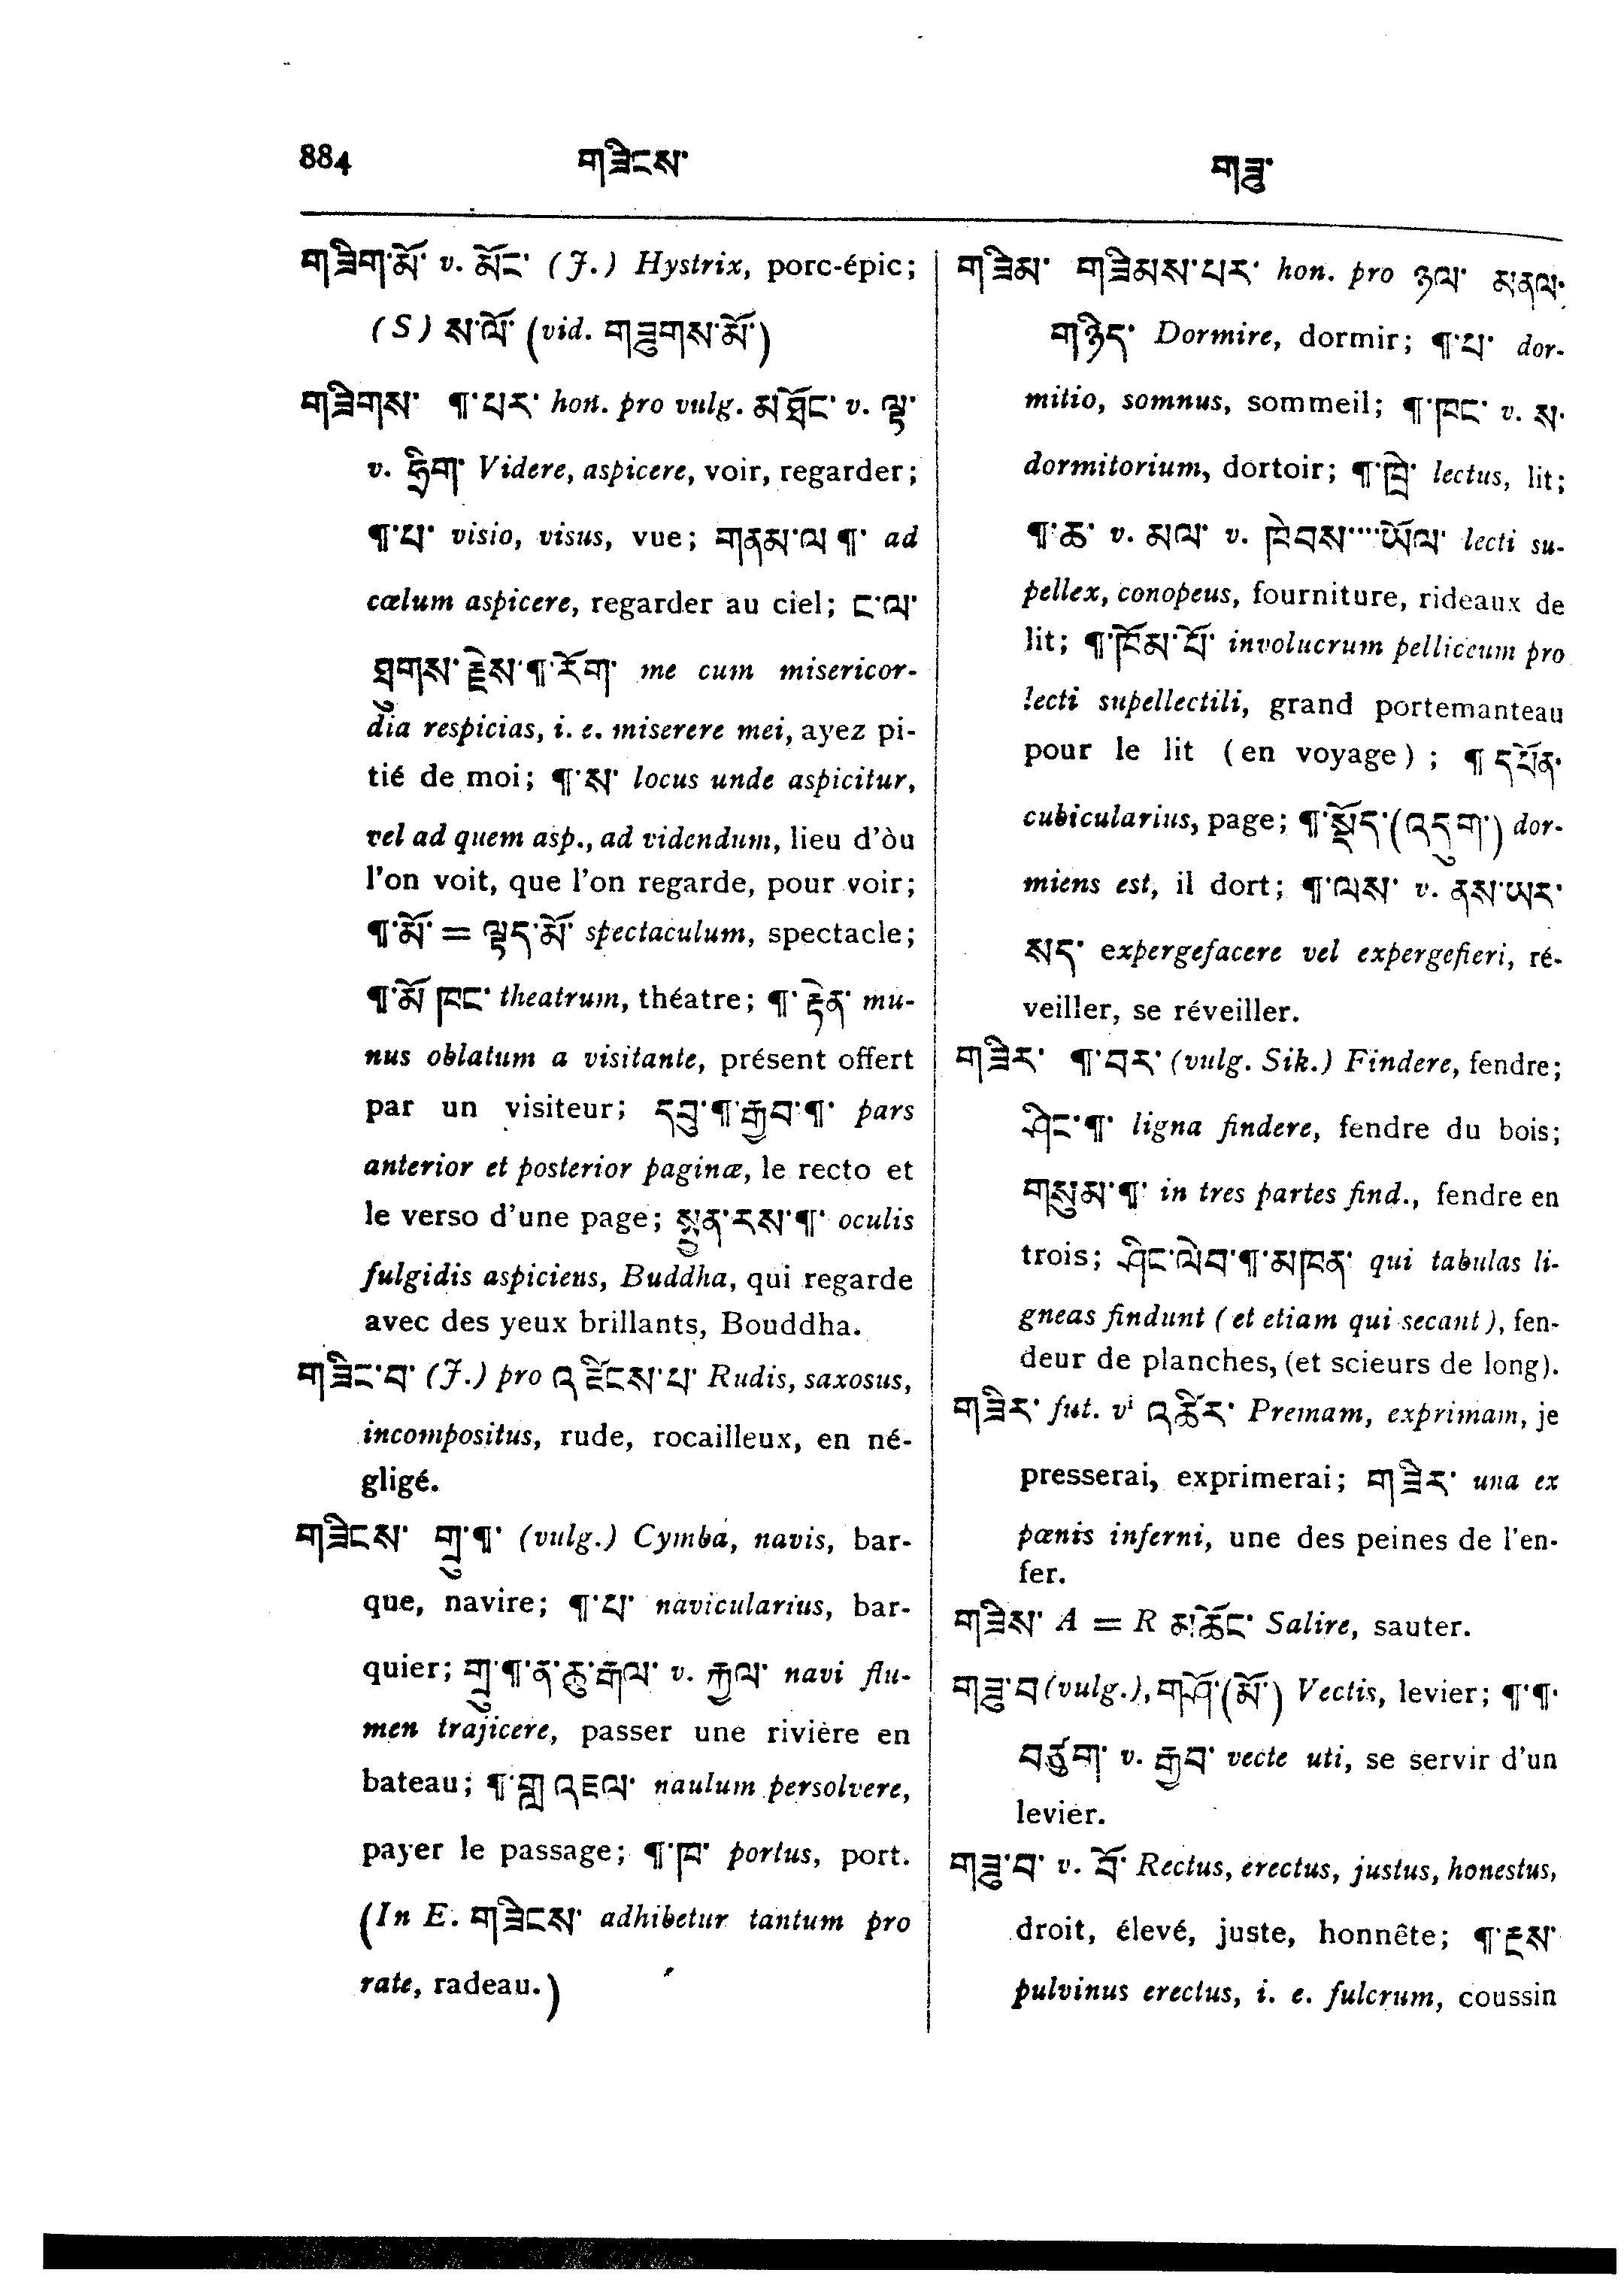 884 གཟིངས་ གཟུ་
གཟིག་མོ་ v. མོང་ (J.) Hystrix, porc-épic;
(S) ས་ལོ་ (vid. གཟུགས་མོ་)
གཟིགས་ ¶་པར་ hon. pro vulg. མཐོང་ v. ལྟ་
v. ཧྲིག་ Videre, aspicere, voir, regarder;
¶་པ་ visio, visus, vue; གནམ་ལ ¶་ ad
cœlum aspicere, regarder au ciel; ང་ལ་
ཐུགས་རྗེས་¶་རོག་ me cum misericor-
dia respicias, i. e. miserere mei, ayez pi-
tié de moi; ¶་ས་ locus unde aspicitur,
vel ad quem asp., ad videndum, lieu d'òu
l'on voit, que l'on regarde, pour voir;
¶་མོ་ = ལྟད་མོ་ spectaculum, spectacle;
¶་མོ ཁང་ theatrum, théatre; ¶་རྟེན་ mu-
nus oblatum a visitante, présent offert
par un visiteur; དབུ་¶་རྒྱབ་¶་ pars
anterior et posterior paginæ, le recto et
le verso d'une page; སྤྱན་རས་¶་ oculis
fulgidis aspiciens, Buddha, qui regarde
avec des yeux brillants, Bouddha.
གཟིང་བ་ (J.) pro འཛིངས་པ་ Rudis, saxosus,
incompositus, rude, rocailleux, en né-
gligé.
གཟིངས་ གྲུ་¶་ (vulg.) Cymba, navis, bar-
que, navire; ¶་པ་ navicularius, bar-
quier; གྲུ་¶་ན་ཆུ་རྒལ་ v. རྐྱལ་ navi flu-
men trajicere, passer une rivière en
bateau; ¶་གླ འཇལ་ naulum persolvere,
payer le passage; ¶་ཁ་ portus, port.
(In E. གཟིངས་ adhibetur tantum pro
rate, radeau.)
གཟིམ་ གཟིམས་པར་ hon. pro ཉལ་ མནལ་
གཉིད་ Dormire, dormir; ¶་པ་ dor-
mitio, somnus, sommeil; ¶་ཁང་ v. ས་
dormitorium, dortoir; ¶་ཁྲི་ lectus, lit;
¶་ཆ་ v. མལ་ v. ཁེབས་···ཡོལ་ lecti su-
pellex, conopeus, fourniture, rideaux de
lit; ¶་ཁོམ་པོ་ involucrum pelliceum pro
lecti supellectili, grand portemanteau
pour le lit (en voyage); ¶ དཔོན་
cubicularius, page; ¶་སྡོད་(འདུག་) dor-
miens est, il dort; ¶་ལས་ v. ནས་ཡར་
སད་ expergefacere vel expergefieri, ré-
veiller, se réveiller.
གཟིར་ ¶་བར་ (vulg. Sik.) Findere, fendre;
ཤིང་¶་ ligna findere, fendre du bois;
གསུམ་¶་ in tres partes find., fendre en
trois; ཤིང་ལེབ་¶་མཁན་ qui tabulas li-
gneas findunt (et etiam qui secant), fen-
deur de planches, (et scieurs de long).
གཟིར་ fut. vi འཚིར་ Premam, exprimam, je
presserai, exprimerai; གཟིར་ una ex
pœnis inferni, une des peines de l'en-
fer.
གཟིས་ A = R མཆོང་ Salire, sauter.
གཟུ་བ (vulg.), གཤོ་(མོ་) Vectis, levier; ¶་¶་
བཙུག་ v. རྒྱབ་ vecte uti, se servir d'un
levier.
གཟུ་བ་ v. བོ་ Rectus, erectus, justus, honestus,
droit, élevé, juste, honnête; ¶་རྔས་
pulvinus erectus, i. e. fulcrum, coussin